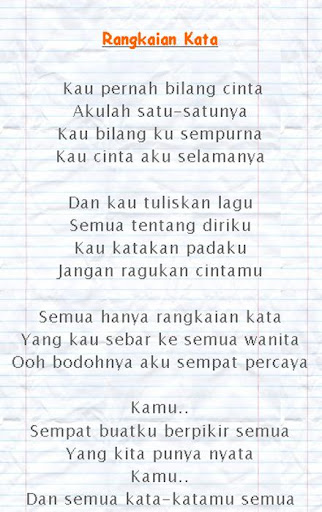 Rangkaian Kata
Kau pernah bilang cinta
Akulah satu-satunya
Kau bilang ku sempurna
Kau cinta aku selamanya
Dan kau tuliskan lagu
Semua tentang diriku
Kau katakan padaku
Jangan ragukan cintamu
Semua hanya rangkaian kata
Yang kau sebar ke semua wanita
Ooh bodohnya aku sempat percaya
Kamu..
Sempat buatku berpikir semua
Yang kita punya nyata
Kamu..
Dan semua kata-katamu semua